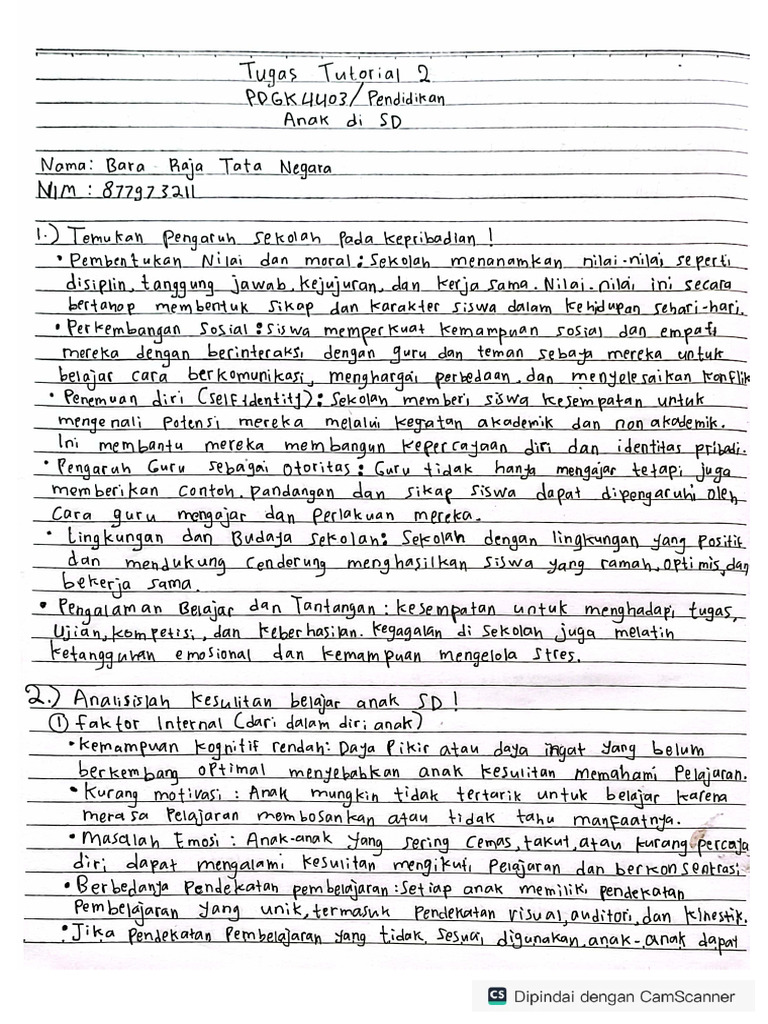 Tugas Tutorial 2
PDGK4403/Pendidikan
Anak di SD
Nama: Bara Raja Tata Negara
NIM : 877973211
1.) Temukan Pengaruh sekolah pada kepribadian !
• Pembentukan Nilai dan moral : Sekolah menanamkan nilai-nilai seperti
disiplin, tanggung jawab, kejujuran, dan kerja sama. Nilai-nilai ini secara
bertahap membentuk sikap dan karakter siswa dalam kehidupan sehari-hari.
• Perkembangan Sosial : Siswa memperkuat kemampuan sosial dan empati
mereka dengan berinteraksi dengan guru dan teman sebaya mereka untuk
belajar cara berkomunikasi, menghargai perbedaan, dan menyelesaikan konflik
• Penemuan diri (self identity) : Sekolah memberi siswa kesempatan untuk
mengenali potensi mereka melalui kegiatan akademik dan non akademik.
Ini membantu mereka membangun kepercayaan diri dan identitas pribadi.
• Pengaruh Guru sebagai Otoritas : Guru tidak hanya mengajar tetapi juga
memberikan contoh. pandangan dan sikap siswa dapat dipengaruhi oleh
cara guru mengajar dan perlakuan mereka.
• Lingkungan dan Budaya sekolah : Sekolah dengan lingkungan yang positif
dan mendukung cenderung menghasilkan siswa yang ramah, optimis, dan
bekerja sama.
• Pengalaman Belajar dan Tantangan : kesempatan untuk menghadapi tugas,
Ujian, kompetisi, dan keberhasilan. kegagalan di sekolah juga melatih
ketangguhan emosional dan kemampuan mengelola stres.
2.) Analisislah kesulitan belajar anak SD !
① faktor Internal (dari dalam diri anak)
• kemampuan kognitif rendah : Daya Pikir atau daya ingat yang belum
berkembang optimal menyebabkan anak kesulitan memahami Pelajaran.
• Kurang motivasi : Anak mungkin tidak tertarik untuk belajar karena
merasa Pelajaran membosankan atau tidak tahu manfaatnya.
• Masalah Emosi : Anak-anak yang sering cemas, takut, atau kurang percaya
diri dapat mengalami kesulitan mengikuti Pelajaran dan berkonsentrasi
• Berbedanya Pendekatan pembelajaran : Setiap anak memiliki pendekatan
Pembelajaran yang unik, termasuk Pendekatan visual, auditori, dan kinestik.
• Jika Pendekatan Pembelajaran yang tidak sesuai digunakan, anak-anak dapat
CS Dipindai dengan CamScanner